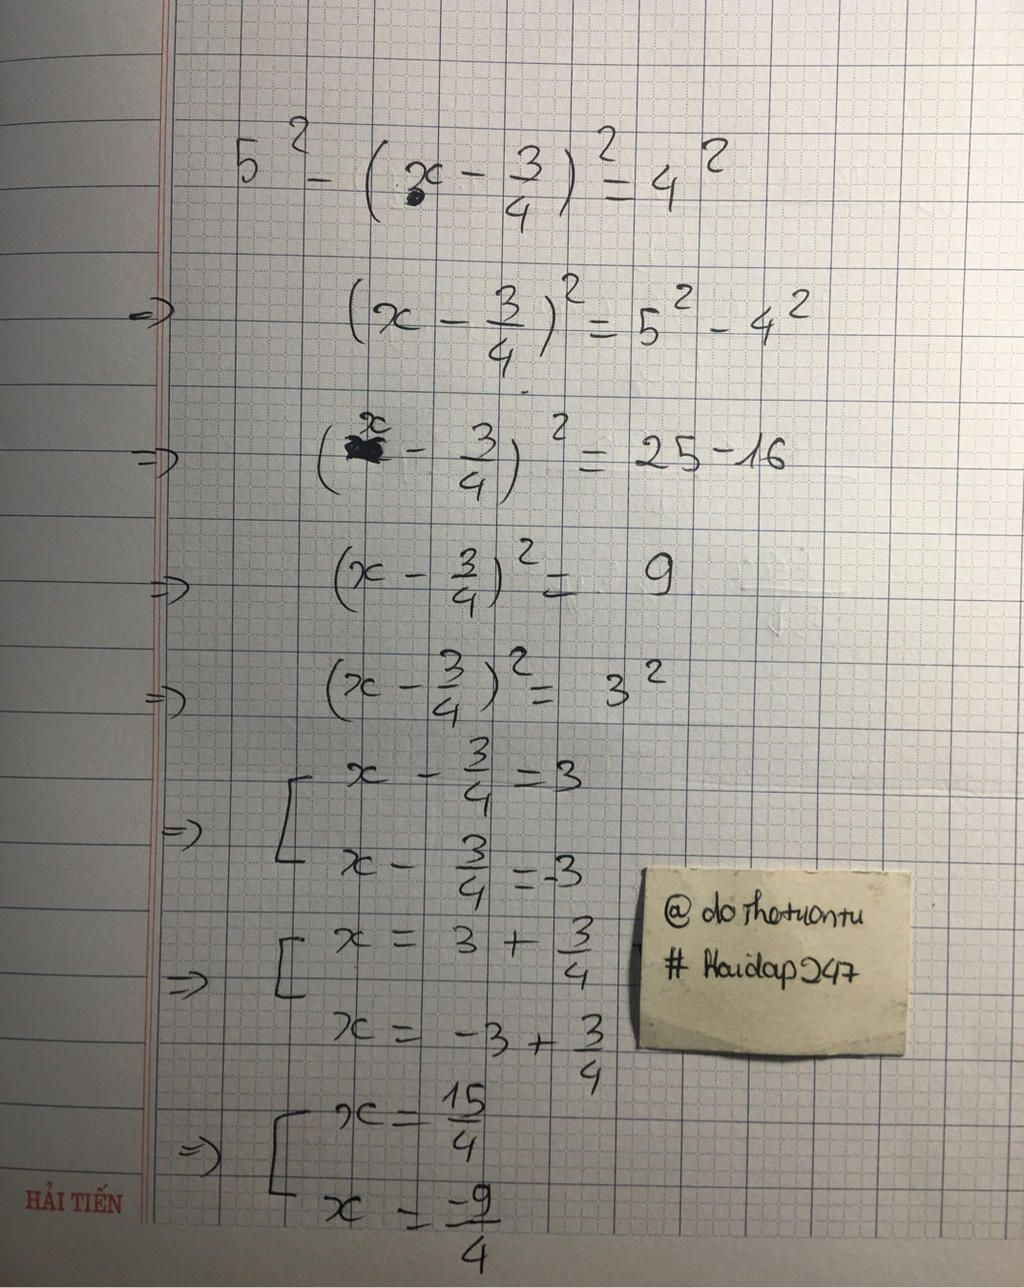 5² - (x - 3/4)² = 4²
=> (x - 3/4)² = 5² - 4²
=> (x - 3/4)² = 25 - 16
=> (x - 3/4)² = 9
=> (x - 3/4)² = 3²
=> [ x - 3/4 = 3
x - 3/4 = -3
=> [ x = 3 + 3/4
x = -3 + 3/4
=> [ x = 15/4
x = -9/4
@dothotuontu
#Haidap247
HẢI TIẾN